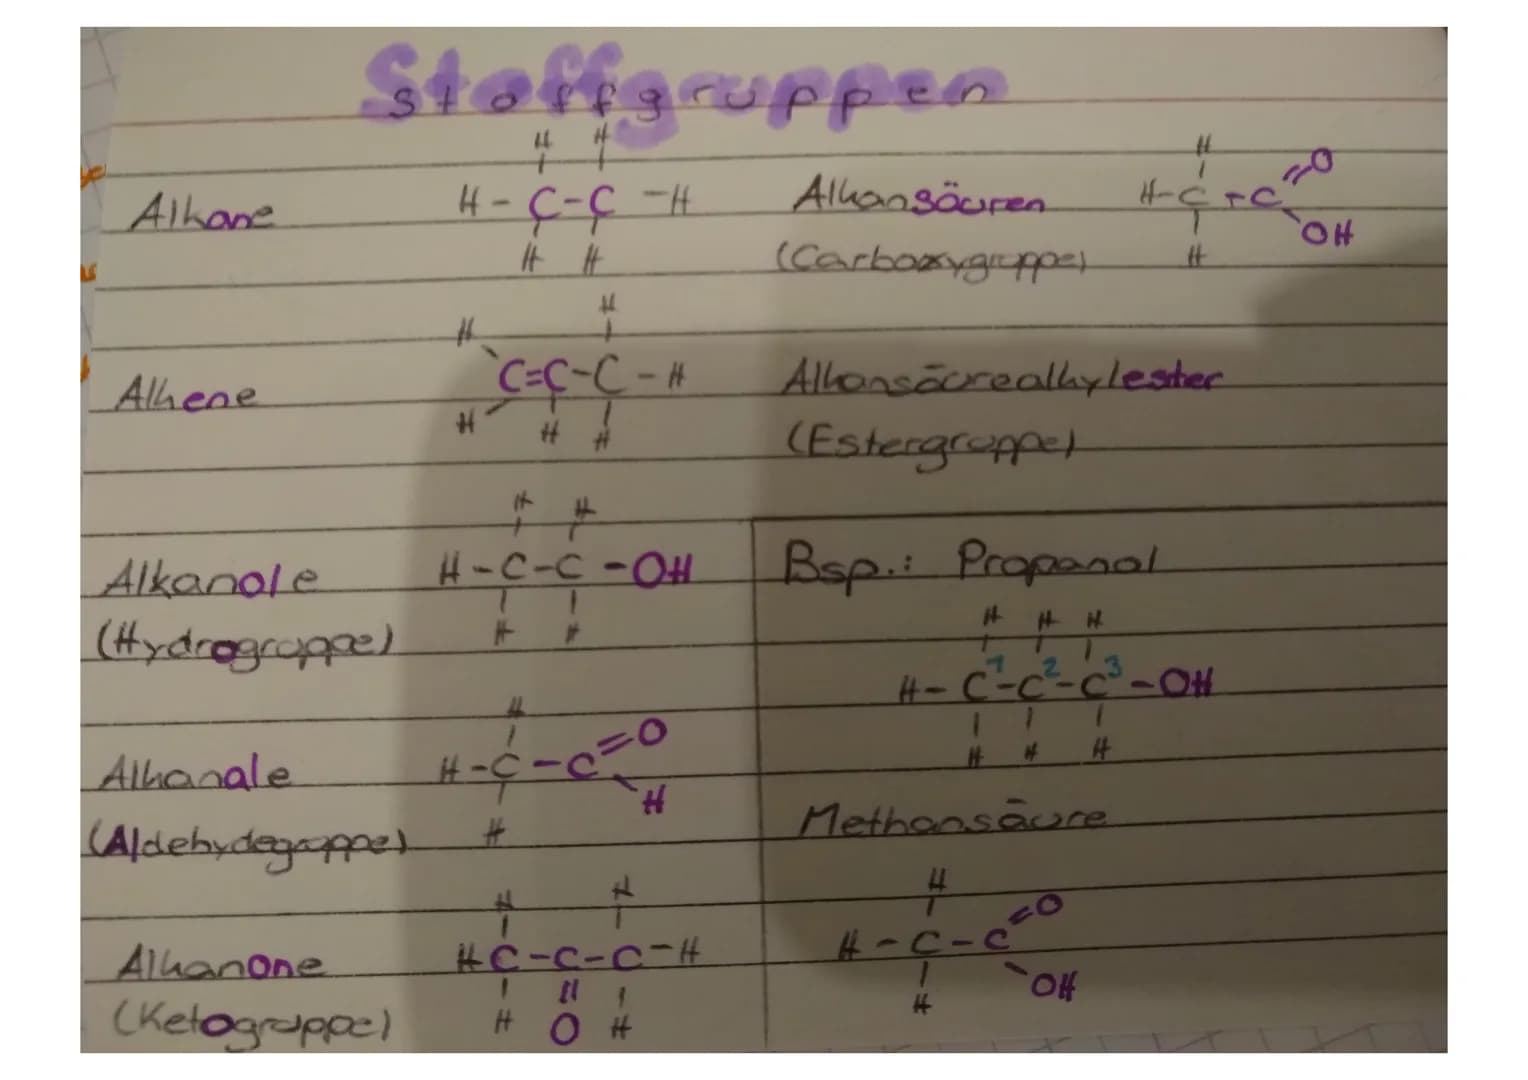 Stoffgruppen
Alkane
H - C - C - H
H H
H H
Alkene
H
H
C=C-C - H
H
H H H
Alkanole
(Hydrogruppe)
H H
H - C - C - OH
H H
Alkanale
(Aldehydegruppe)
H
H - C - C = O
H
H
Alkanone
(Ketogruppe)
H H
H C - C - C - H
H O H
Alkansäuren
(Carboxygruppe)
H
H - C - C = O
OH
H
Alkansäurealkylester
(Estergruppe)
Bsp.: Propanol
H H H
H - C1 - C2 - C3 - OH
H H H
Methansäure
H
H - C - C = O
OH
H